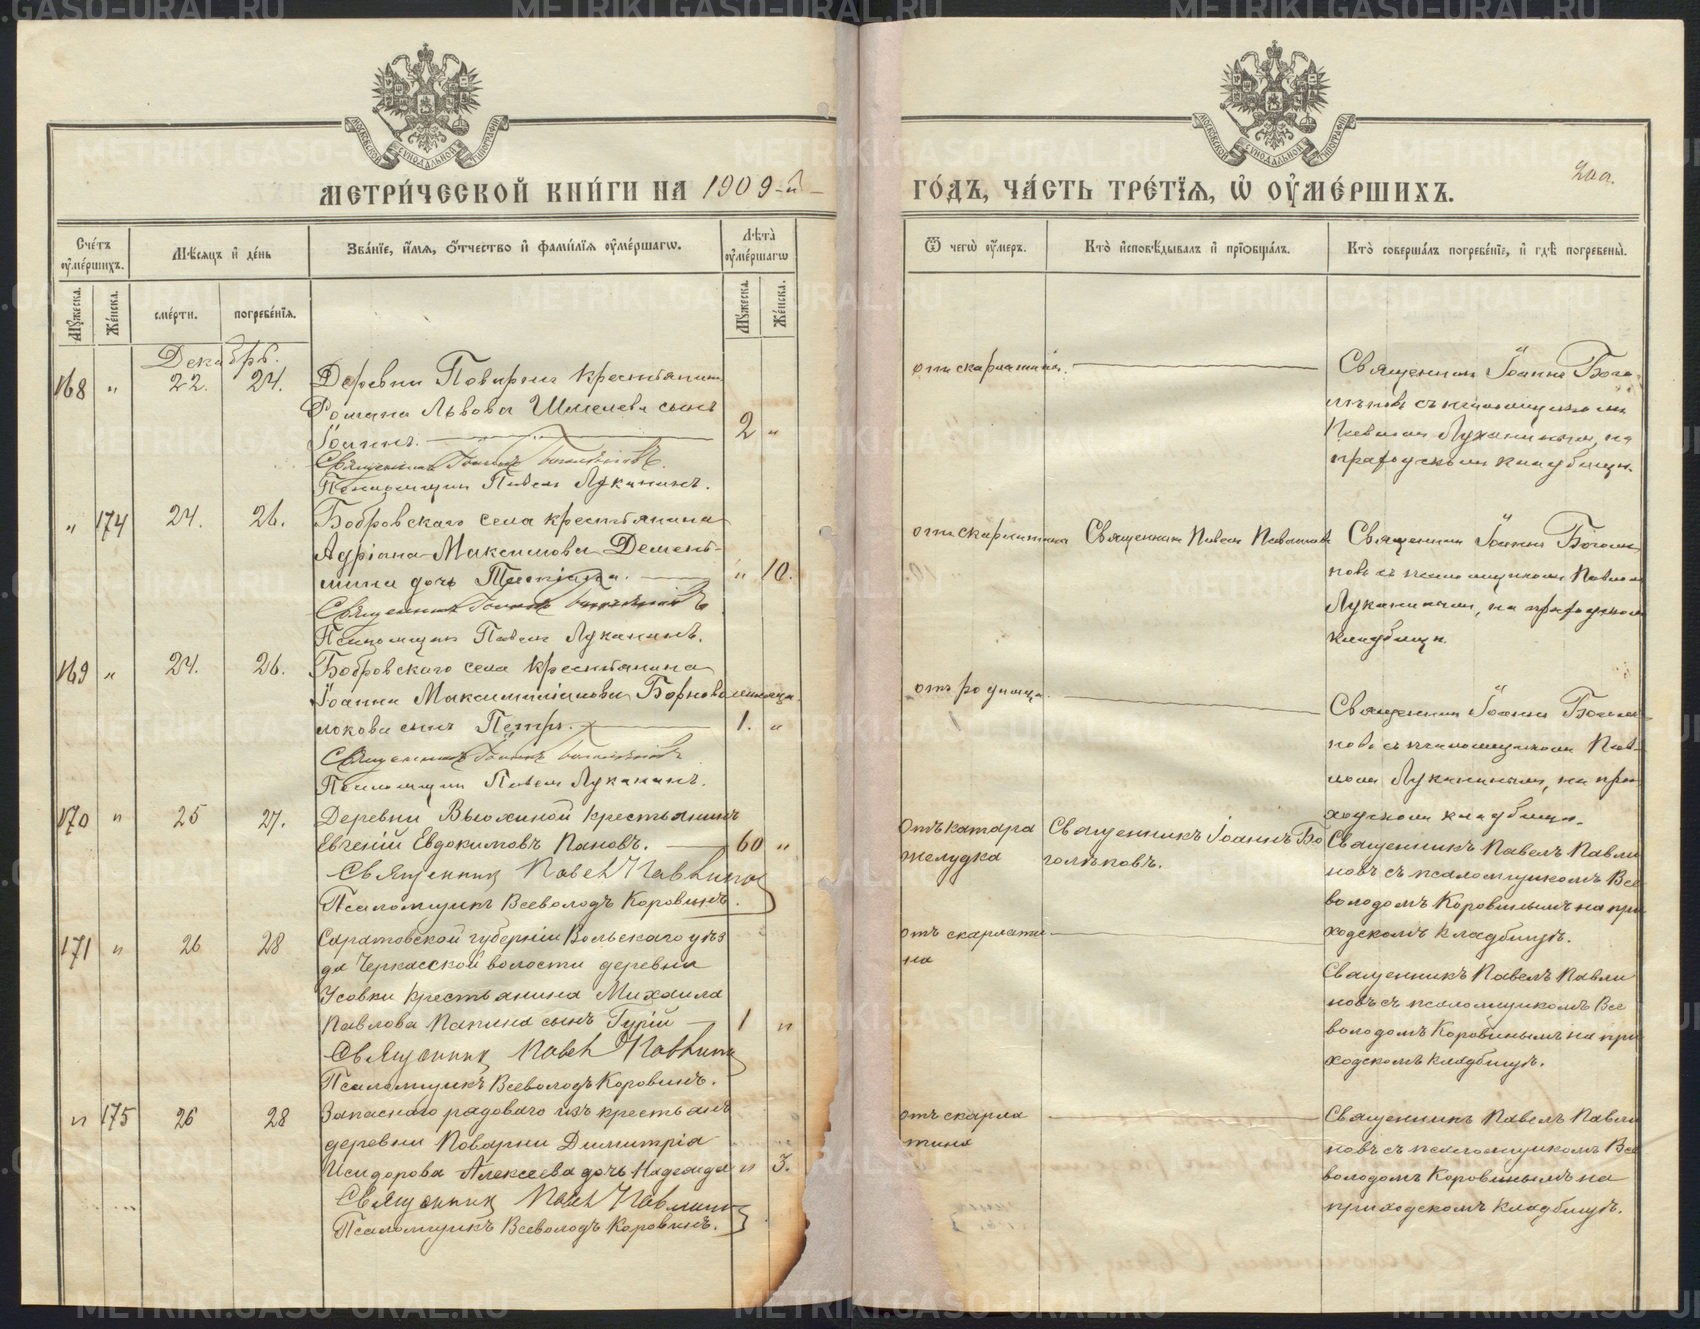 МЕТРИ́ЧЕСКОЙ КНИ́ГИ НА 1909-й ГО́ДЪ, ЧА́СТЬ ТРЕ́ТІѦ, Ѡ ОУ҆МЕ́РШИХЪ.
Сче́тъ оу҆ме́ршихъ.
Мѣ́сяцъ и҆ де́нь
Зва́нїе, и҆́мѧ, ѻ҆́тчество и҆ фами́лїѧ оу҆ме́ршагѡ.
Лѣ́та оу҆ме́ршагѡ
Ѿ чегѡ̀ оу҆́меръ.
Кто̀ и҆сповѣ́дывалъ и҆ прїѡбща́лъ.
Кто̀ соверша́лъ погребе́нїе, и҆ гдѣ̀ погребены̀.
Мꙋ́жеска.
Же́нска.
сме́рти.
погребе́нїѧ.
Мꙋ́жеска.
Же́нска.
Декабрь.
168 " 22. 24. Деревни Поварни крестьянина
Романа Львова Шмелева сынъ
Іоаннъ. 2 "
Священникъ Іоаннъ Боголѣповъ
Псаломщикъ Павелъ Луканинъ.
отъ скарлатины.
Священникъ Іоаннъ Бого-
лѣповъ съ псаломщикомъ
Павломъ Луканинымъ, на
приходскомъ кладбищѣ.
" 174 24. 26. Бобровскаго села крестьянина
Адріана Максимова Демень-
шина дочь 10.
Священникъ Іоаннъ Боголѣповъ
Псаломщикъ Павелъ Луканинъ.
отъ скарлатины Священникъ Павелъ Павлиновъ
Священникъ Іоаннъ Боголѣ-
повъ съ псаломщикомъ Павломъ
Луканинымъ, на приходскомъ
кладбищѣ.
169 " 24. 26. Бобровскаго села крестьянина
Іоанна Максимиліанова
локова сынъ Петръ. 1. "
Священникъ Іоаннъ Боголѣповъ
Псаломщикъ Павелъ Луканинъ.
отъ родимца.
Священникъ Іоаннъ Боголѣ-
повъ съ псаломщикомъ Пав-
ломъ Луканинымъ, на при-
ходскомъ кладбищѣ.
170 " 25 27. Деревни Вьюхиной крестьянинъ
Евгеній Евдокимовъ Пановъ. 60 "
Священникъ Павелъ Павлиновъ
Псаломщикъ Всеволодъ Коровинъ.
Отъ катара
желудка
Священникъ Іоаннъ Бо
голѣповъ.
Священникъ Павелъ Павли
новъ съ псаломщикомъ Все
володомъ Коровинымъ на при
ходскомъ кладбищѣ.
171 " 26 28 Саратовской губерніи Вольскаго уѣз
да Черкасской волости деревни
Усовки крестьянина Михаила
Павлова Папина сынъ Гурій 1 "
Священникъ Павелъ Павлиновъ
Псаломщикъ Всеволодъ Коровинъ.
отъ скарлати
на
Священникъ Павелъ Павли
новъ съ псаломщикомъ Все
володомъ Коровинымъ на при
ходскомъ кладбищѣ.
" 175 26 28 Запаснаго рядового изъ крестьянъ
деревни Поварни Димитрія
Исидорова Алексеева дочь Надежда " 3.
Священникъ Павелъ Павлиновъ
Псаломщикъ Всеволодъ Коровинъ.
отъ скарла
тина
Священникъ Павелъ Павли
новъ съ псаломщикомъ Все
володомъ Коровинымъ на
приходскомъ кладбищѣ.
METRIKI.GASO-URAL.RU